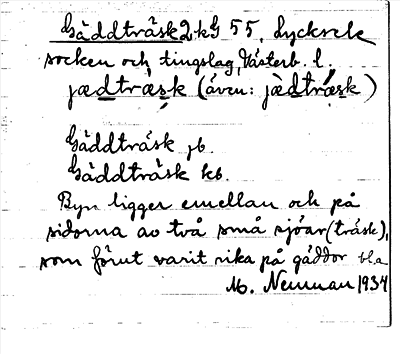 Gäddträsk 2 kG 55, Lycksele
socken och tingslag, Västerb. l.
jædtræsk (även: jæ̀dtræ̀sk)
Gäddträsk jb.
Gäddträsk kb.
Byn ligger emellan och på
sidorna av två små sjöar (träsk),
som förut varit rika på gäddor bl.a
M. Neuman 1934